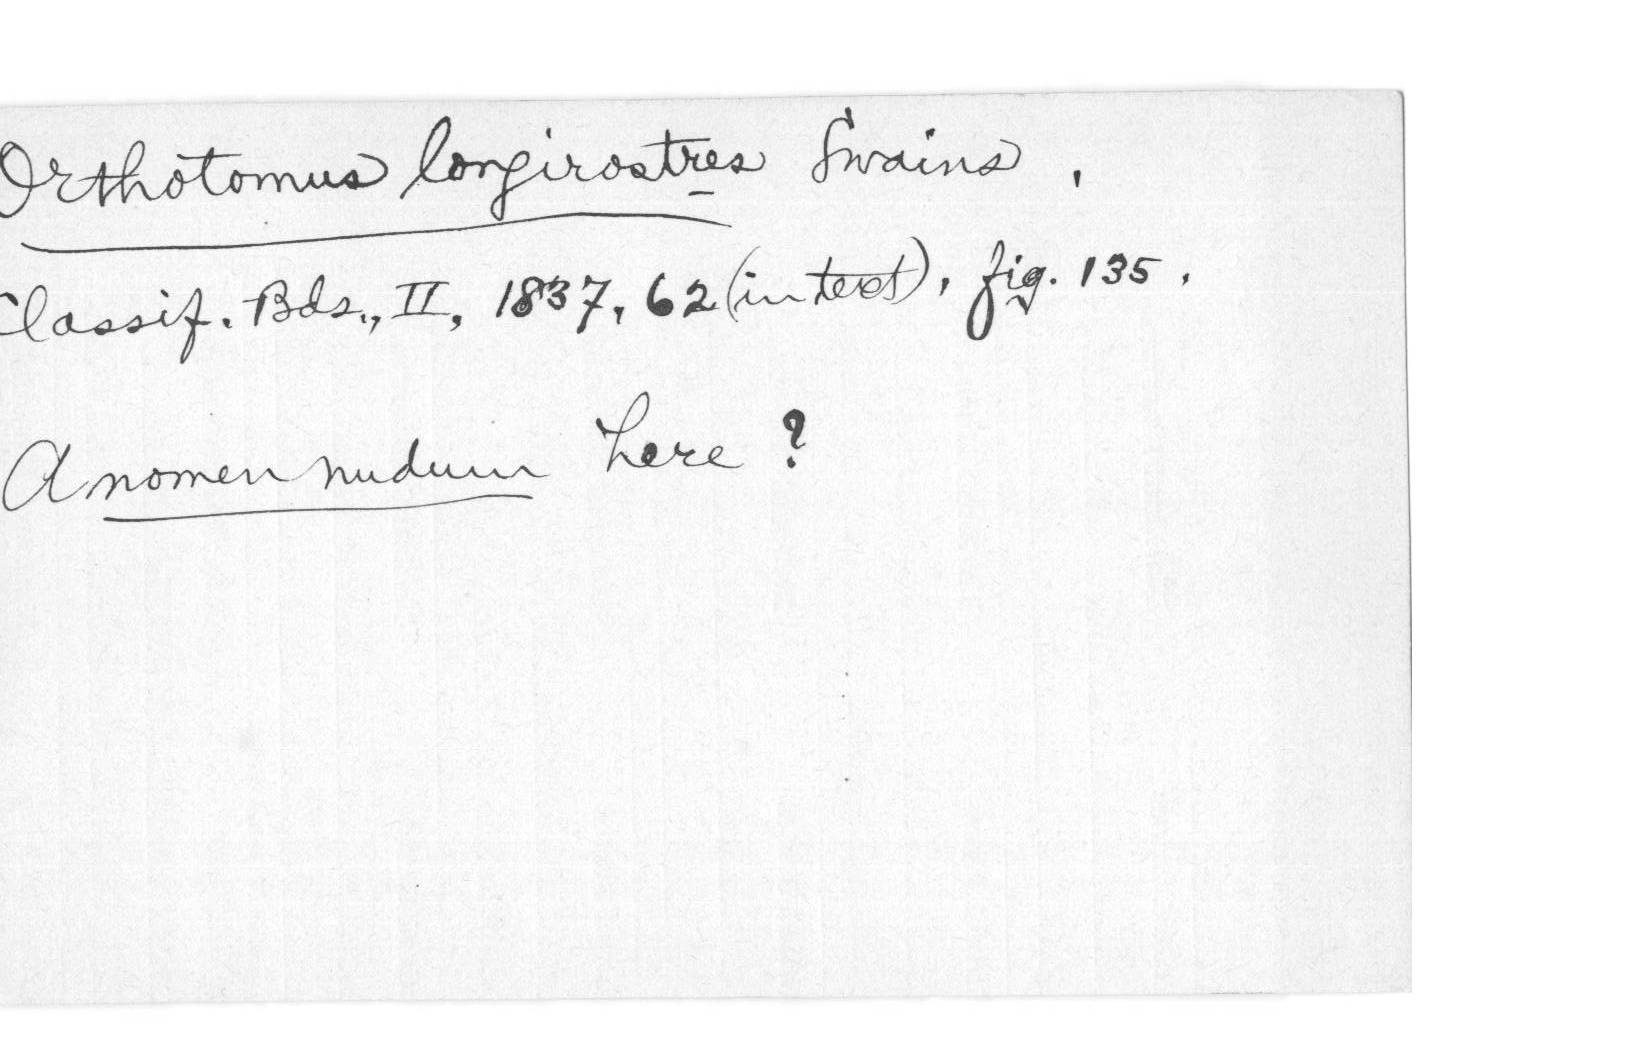 Orthotomus longirostres Swains.
Classif. Bds., II, 1837, 62 (in text), fig. 135.
A nomen nudum here?